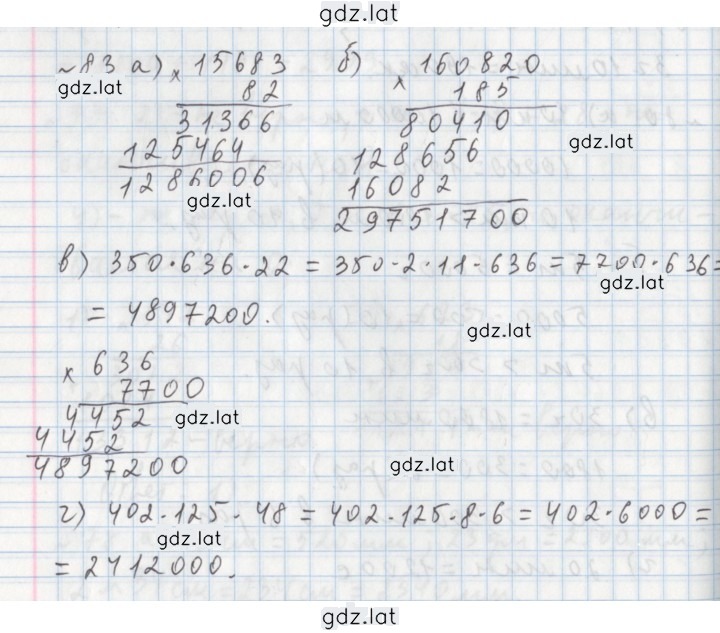 gdz.lat
№83 а) × 15683
82
31366
125464
1286006
б) × 160820
185
80410
128656
16082
29751700
gdz.lat
gdz.lat
gdz.lat
в) 350·636·22 = 350·2·11·636 = 7700·636 =
gdz.lat
= 4897200.
gdz.lat
× 636
7700
4452
4452
4897200
gdz.lat
gdz.lat
г) 402·125·48 = 402·125·8·6 = 402·6000 =
gdz.lat
= 2412000.
gdz.lat